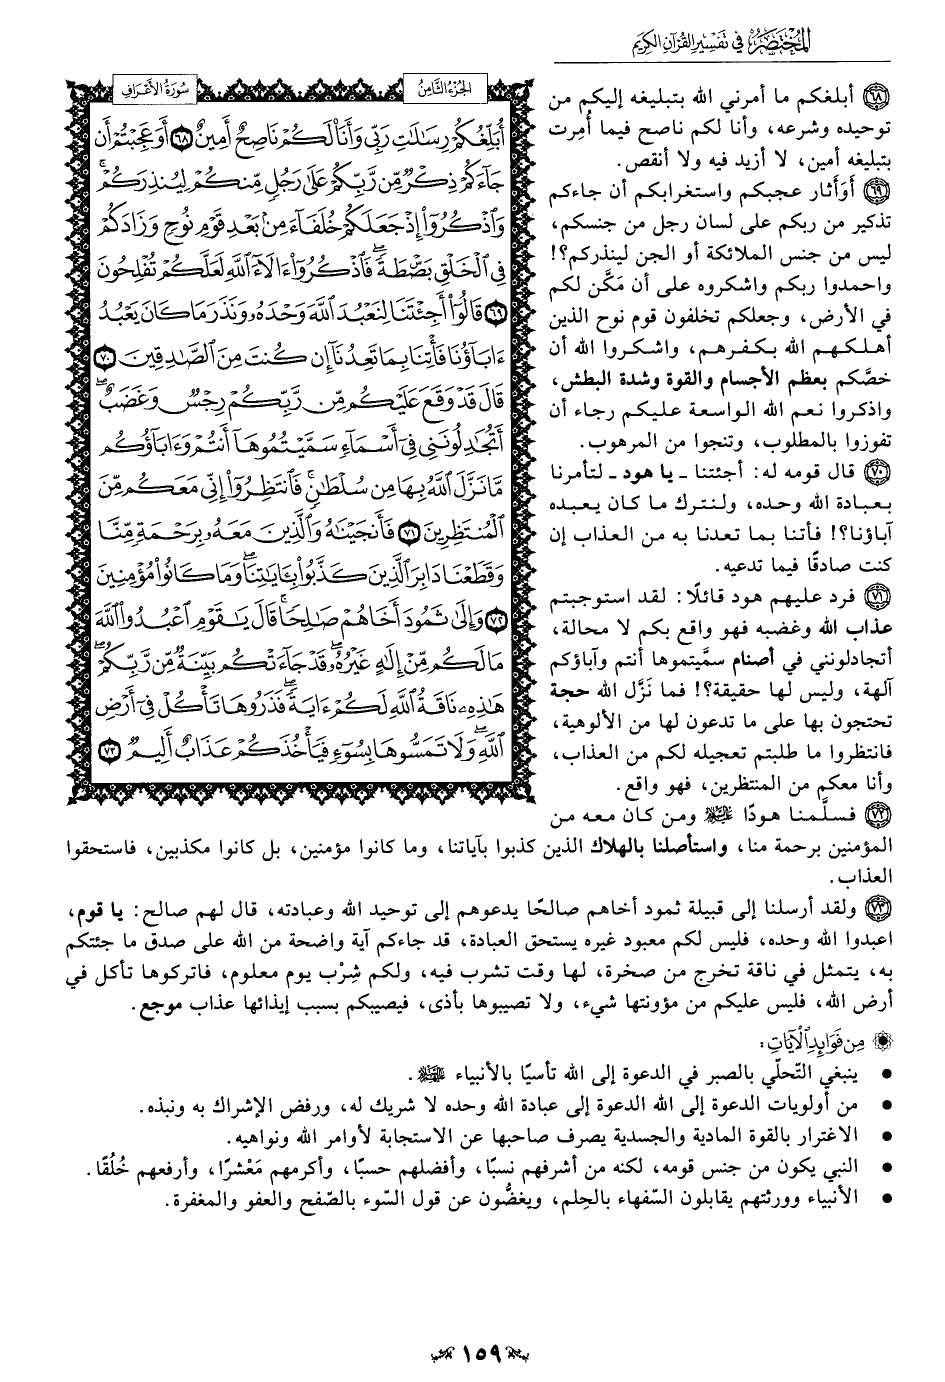 المختصر في تفسير القرآن الكريم
الجزء الثامن
سورة الأعراف
أُبَلِّغُكُمْ رِسَٰلَٰتِ رَبِّى وَأَنَا۠ لَكُمْ نَاصِحٌ أَمِينٌ ٦٨ أَوَعَجِبْتُمْ أَن
جَآءَكُمْ ذِكْرٌ مِّن رَّبِّكُمْ عَلَىٰ رَجُلٍ مِّنكُمْ لِيُنذِرَكُمْ ۚ
وَٱذْكُرُوٓا۟ إِذْ جَعَلَكُمْ خُلَفَآءَ مِنۢ بَعْدِ قَوْمِ نُوحٍ وَزَادَكُمْ
فِى ٱلْخَلْقِ بَصْۜطَةً ۖ فَٱذْكُرُوٓا۟ ءَالَآءَ ٱللَّهِ لَعَلَّكُمْ تُفْلِحُونَ
٦٩ قَالُوٓا۟ أَجِئْتَنَا لِنَعْبُدَ ٱللَّهَ وَحْدَهُۥ وَنَذَرَ مَا كَانَ يَعْبُدُ
ءَابَآؤُنَا ۖ فَأْتِنَا بِمَا تَعِدُنَآ إِن كُنتَ مِنَ ٱلصَّٰدِقِينَ ٧٠
قَالَ قَدْ وَقَعَ عَلَيْكُم مِّن رَّبِّكُمْ رِجْسٌ وَغَضَبٌ ۖ
أَتُجَٰدِلُونَنِى فِىٓ أَسْمَآءٍ سَمَّيْتُمُوهَآ أَنتُمْ وَءَابَآؤُكُم
مَّا نَزَّلَ ٱللَّهُ بِهَا مِن سُلْطَٰنٍ ۚ فَٱنتَظِرُوٓا۟ إِنِّى مَعَكُم مِّنَ
ٱلْمُنتَظِرِينَ ٧١ فَأَنجَيْنَٰهُ وَٱلَّذِينَ مَعَهُۥ بِرَحْمَةٍ مِّنَّا
وَقَطَعْنَا دَابِرَ ٱلَّذِينَ كَذَّبُوا۟ بِـَٔايَٰتِنَا ۖ وَمَا كَانُوا۟ مُؤْمِنِينَ
٧٢ وَإِلَىٰ ثَمُودَ أَخَاهُمْ صَٰلِحًا ۗ قَالَ يَٰقَوْمِ ٱعْبُدُوا۟ ٱللَّهَ
مَا لَكُم مِّنْ إِلَٰهٍ غَيْرُهُۥ ۖ قَدْ جَآءَتْكُم بَيِّنَةٌ مِّن رَّبِّكُمْ ۖ
هَٰذِهِۦ نَاقَةُ ٱللَّهِ لَكُمْ ءَايَةً ۖ فَذَرُوهَا تَأْكُلْ فِىٓ أَرْضِ
ٱللَّهِ ۖ وَلَا تَمَسُّوهَا بِسُوٓءٍ فَيَأْخُذَكُمْ عَذَابٌ أَلِيمٌ ٧٣
٦٨ أبلغكم ما أمرني الله بتبليغه إليكم من
توحيده وشرعه، وأنا لكم ناصح فيما أُمِرت
بتبليغه أمين، لا أزيد فيه ولا أنقص.
٦٩ أَوَأثار عجبكم واستغرابكم أن جاءكم
تذكير من ربكم على لسان رجل من جنسكم،
ليس من جنس الملائكة أو الجن لينذركم؟!
واحمدوا ربكم واشكروه على أن مَكَّن لكم
في الأرض، وجعلكم تخلفون قوم نوح الذين
أهلكهم الله بكفرهم، واشكروا الله أن
خصَّكم بعظم الأجسام والقوة وشدة البطش،
واذكروا نعم الله الواسعة عليكم رجاء أن
تفوزوا بالمطلوب، وتنجوا من المرهوب.
٧٠ قال قومه له: أجئتنا - يا هود - لتأمرنا
بعبادة الله وحده، ولنترك ما كان يعبده
آباؤنا؟! فأتنا بما تعدنا به من العذاب إن
كنت صادقًا فيما تدعيه.
٧١ فرد عليهم هود قائلًا: لقد استوجبتم
عذاب الله وغضبه فهو واقع بكم لا محالة،
أتجادلونني في أصنام سمَّيتموها أنتم وآباؤكم
آلهة، وليس لها حقيقة؟! فما نَزَّل الله حجة
تحتجون بها على ما تدعون لها من الألوهية،
فانتظروا ما طلبتم تعجيله لكم من العذاب،
وأنا معكم من المنتظرين، فهو واقع.
٧٢ فسلَّمنا هودًا ﷺ ومن كان معه من
المؤمنين برحمة منا، واستأصلنا بالهلاك الذين كذبوا بآياتنا، وما كانوا مؤمنين، بل كانوا مكذبين، فاستحقوا
العذاب.
٧٣ ولقد أرسلنا إلى قبيلة ثمود أخاهم صالحًا يدعوهم إلى توحيد الله وعبادته، قال لهم صالح: يا قوم،
اعبدوا الله وحده، فليس لكم معبود غيره يستحق العبادة، قد جاءكم آية واضحة من الله على صدق ما جئتكم
به، يتمثل في ناقة تخرج من صخرة، لها وقت تشرب فيه، ولكم شِرْب يوم معلوم، فاتركوها تأكل في
أرض الله، فليس عليكم من مؤونتها شيء، ولا تصيبوها بأذى، فيصيبكم بسبب إيذائها عذاب موجع.
من فوائد الآيات:
● ينبغي التّحلّي بالصبر في الدعوة إلى الله تأسيًا بالأنبياء.
● من أولويات الدعوة إلى الله الدعوة إلى عبادة الله وحده لا شريك له، ورفض الإشراك به ونبذه.
● الاغترار بالقوة المادية والجسدية يصرف صاحبها عن الاستجابة لأوامر الله ونواهيه.
● النبي يكون من جنس قومه، لكنه من أشرفهم نسبًا، وأفضلهم حسبًا، وأكرمهم مَعْشرًا، وأرفعهم خُلُقًا.
● الأنبياء وورثتهم يقابلون السّفهاء بالحِلم، ويغضُّون عن قول السّوء بالصّفح والعفو والمغفرة.
١٥٩